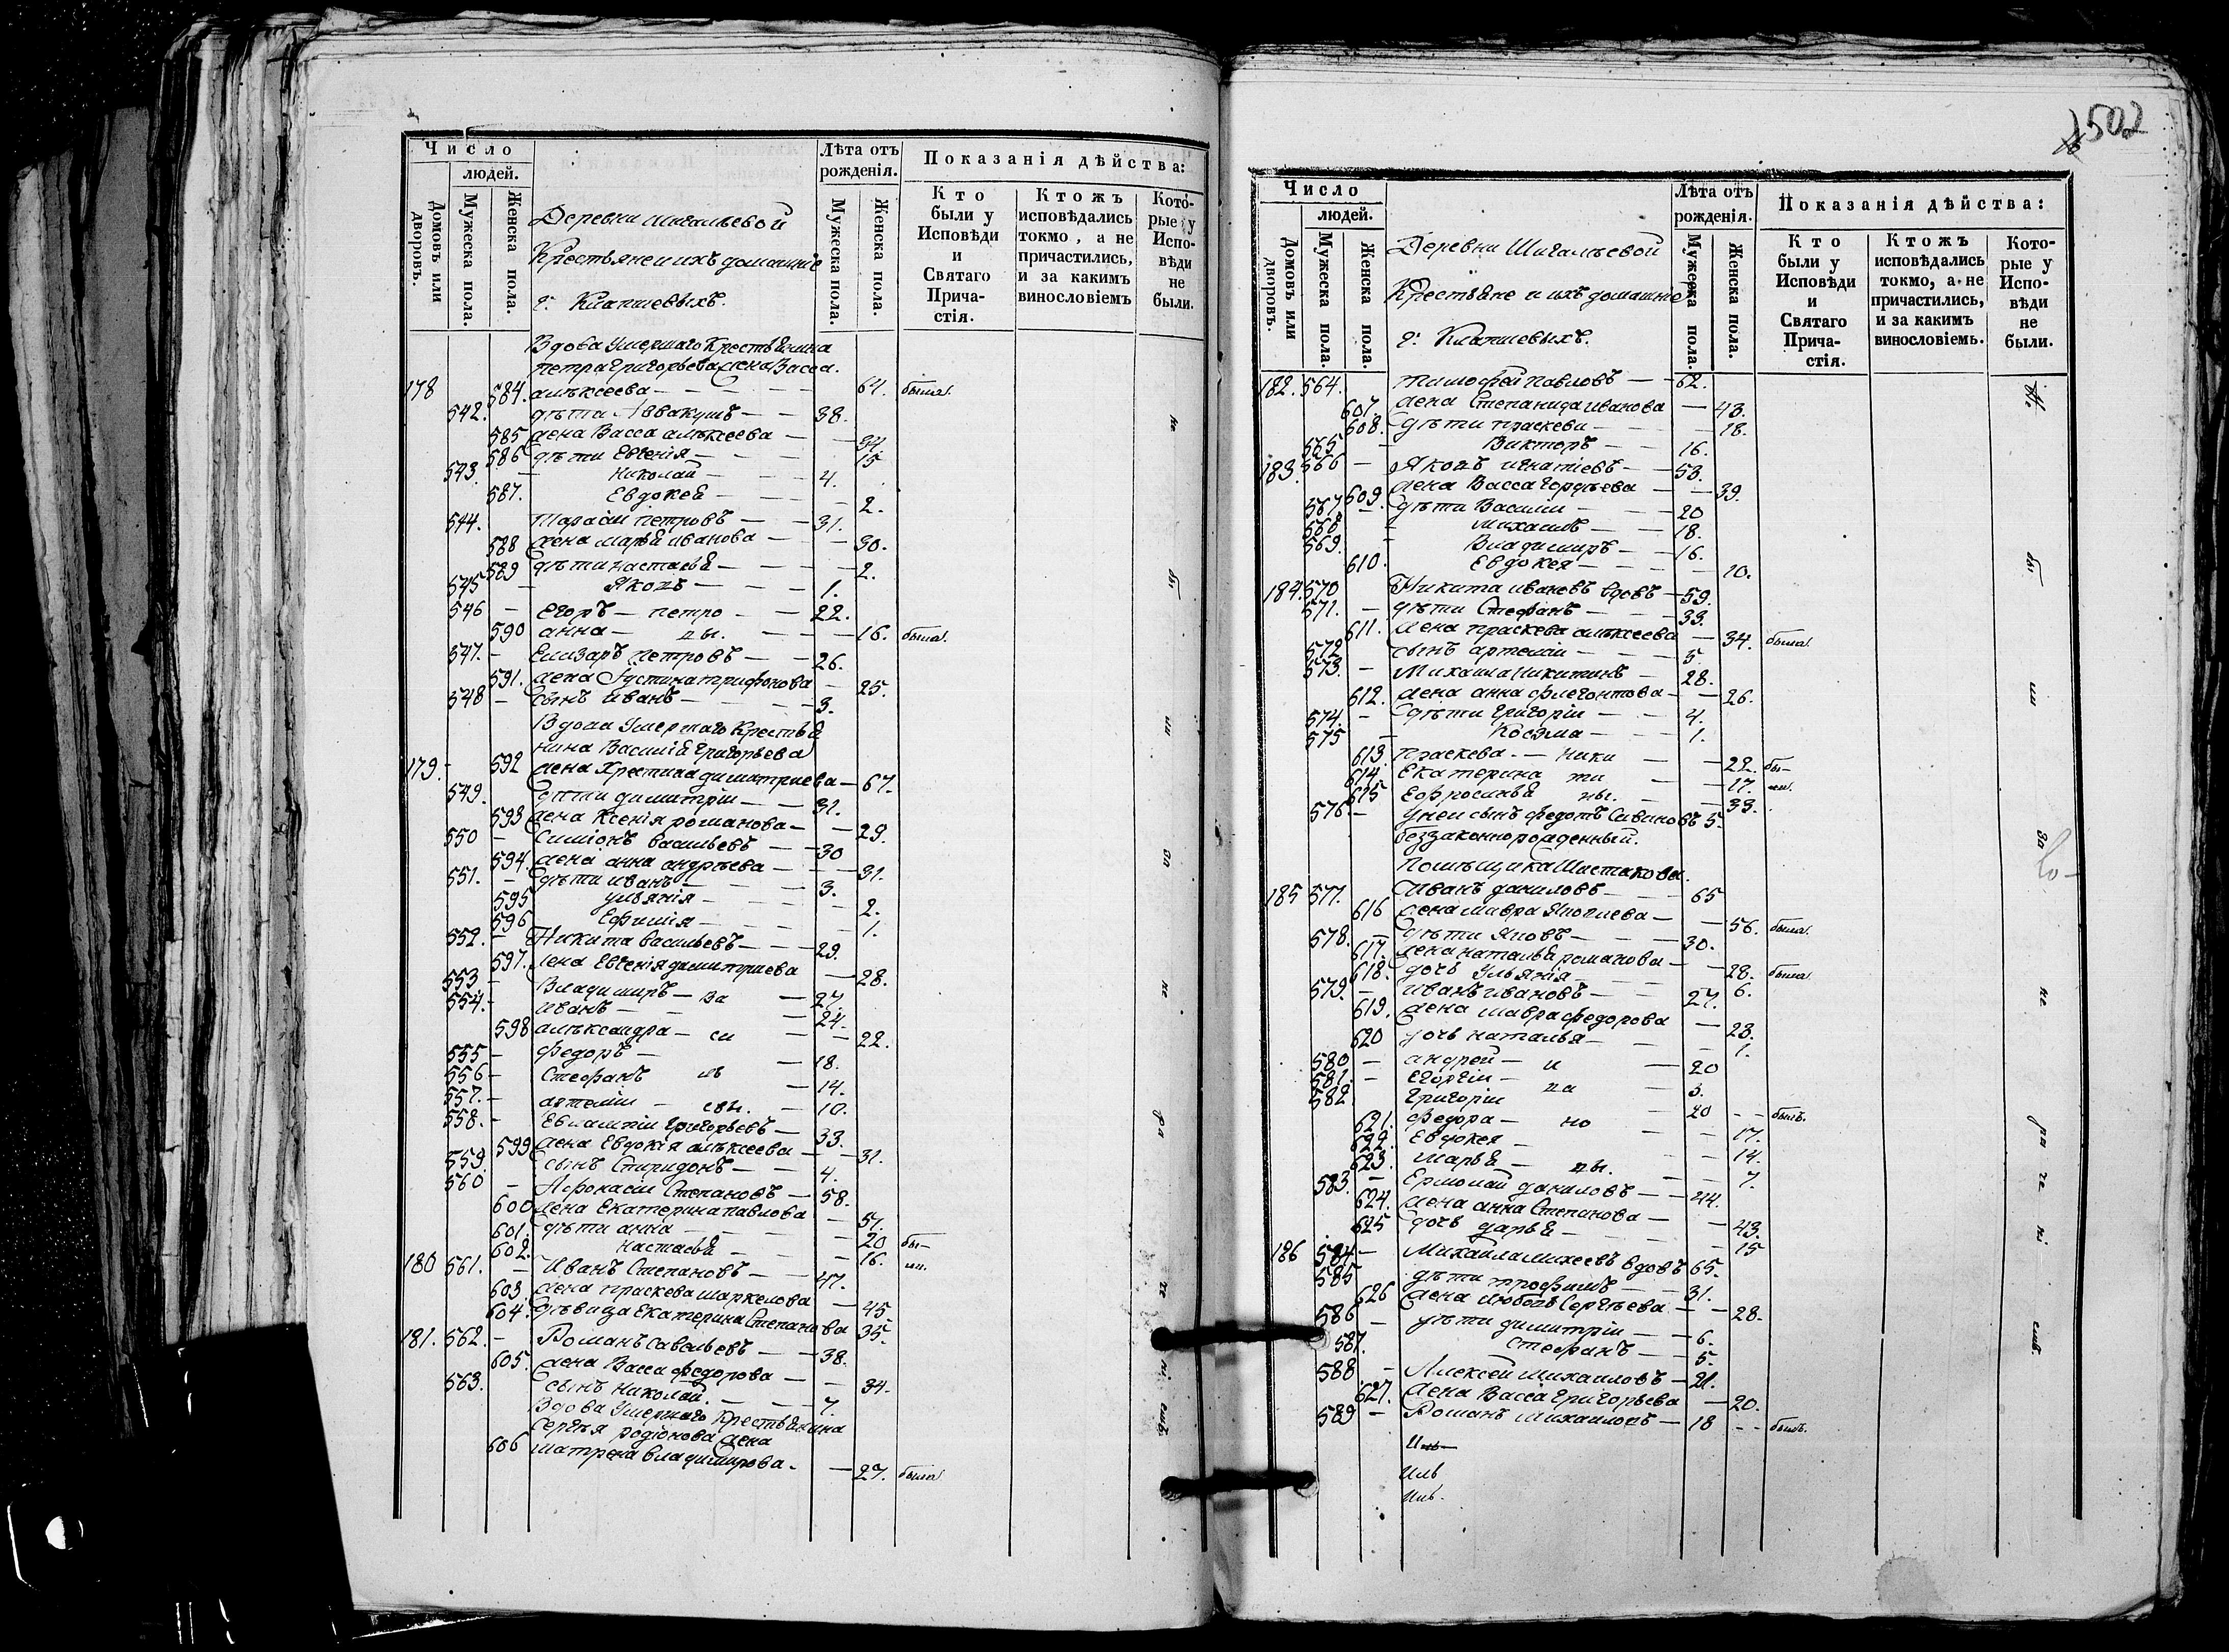 Число
людей.
Домовъ или дворовъ.
Мужеска пола.
Женска пола.
Деревни Шигальевой
Крестьяне и ихъ домашніе
г: Клапшевыхъ.
Лѣта отъ рожденія.
Мужеска пола.
Женска пола.
Показанія дѣйства:
Кто были у Исповѣди и Святаго Прича-стія.
Ктожъ исповѣдались токмо, а не причастились, и за какимъ винословіемъ
Кото-рые у Испо-вѣди не были.
Вдова умершаго Крестьянина
петра Григорьева жена Васса
178 584. алѣксеева — 64. была.
542. дѣти Аввакумъ — 38.
585 жена Васса алѣксеева — 34
586 дѣти Евгенія — 15
543. Николай — 4.
587. Евдокея — 2.
544. Тарасій петровъ — 31.
588 жена марья иванова — 30.
589 дѣти настасья — 2.
545 Яковъ — 1.
546 — Егоръ — петро — 22.
590 анна — вы. — 16. была.
547. — Елизаръ петровъ — 26.
591. жена Густина трифонова — 25.
548 — сынъ иванъ — 3.
Вдова умершаго Крестья
нина Василія Григорьева
179. — 592 жена Христина димитриева — 67.
549. дѣти димитріи — 31.
593 жена Ксенія романова — 29.
550 — Симіонъ васильевъ — 30
594. жена анна андрѣева — 31.
551. — дѣти иванъ — 3.
595 улѣянія — 2.
596 Ефимія — 1.
552. — Никита васильевъ — 29.
597. жена Евгенія димитриева — 28.
553 — Владимиръ — ва — 27.
554. — иванъ — 24.
598 алѣксандра — си — 22.
555 — федоръ — 18.
556 — Стефанъ ль — 14.
557. — артеміи — евы. — 10.
558. — Евлампіи григорьевъ — 33.
599 жена Евдокія алѣксеева — 31.
559. сынъ Спиридонъ — 4.
560 — Афонасіи Степановъ — 58.
600 жена Екатерина павлова — 57.
601. дѣти анна — 20 бы-
602. настасья — 16. ли.
180 561. — Иванъ Степановъ — 47.
603. жена праскева маркелова — 45
604. дѣвица Екатерина Степанова 35.
181. 562. — Романъ савельевъ — 38.
605. жена Васса федорова — 34.
563. сынъ николай. — 7.
Вдова умершаго Крестьянина
сергѣя родіонова жена
606 матрена владимирова. — 27. была
не бы ли за не ра че ні емъ
502
Число
людей.
Домовъ или дворовъ.
Мужеска пола.
Женска пола.
Деревни Шигальевой
Крестьяне и ихъ домашніе
г: Клапшевыхъ.
Лѣта отъ рожденія.
Мужеска пола.
Женска пола.
Показанія дѣйства:
Кто были у Исповѣди и Святаго Прича-стія.
Ктожъ исповѣдались токмо, а не причастились, и за какимъ винословіемъ.
Кото-рые у Испо-вѣди не были.
182. 564. тимофей павловъ — 62.
607. жена Степанида иванова — 43.
608. дѣти праскева — 18.
565 — Викторъ — 16.
183. 566 — Яковъ игнатіевъ — 53.
609. жена Васса гордѣева — 39.
567 — дѣти Василіи — 20
568. — михаилъ — 18.
569. — Владимиръ — 16.
610. Евдокея — 10.
184. 570 Никита ивановъ вдовъ — 59.
571. — дѣти Стефанъ — 33.
611. жена праскева алѣксеева — 34. была.
572 сынъ артеміи — 5.
573. — Михаила никитинъ — 28.
612. жена анна флегонтова — 26.
574. — дѣти григоріи — 4.
575 — Козма — 1.
613. праскева — ники — 22. бы-
614. Екатерина ти — 17. ли.
615 Ефросинья ны. — 33.
576. — У неи сынъ федотъ Савиновъ 5.
беззаконнорожденный.
Помѣщика Шистакова.
185 577. Иванъ даниловъ — 65
616 жена мавра — 56. была.
578. — дѣти Яковъ — 30.
617. жена наталья романова — 28. была
618. дочь Ульянія — 6.
579. — иванъ ивановъ — 27.
619. жена мавра федорова — 23.
620 дочь наталья — 1.
580 — андрей — и — 20
581. — Егоргіи — ва — 3.
582. григоріи 20 — былъ.
621. федора — но — 17.
622. Евдокея — 14.
623. марья — вы. — 7.
583. — Ермолай даниловъ — 44.
624. жена анна Степанова — 43.
625 дочь дарья — 15
186 584 — Михаила михеевъ вдовъ 65.
585 дѣти трофимъ — 31.
626 жена любовь сергѣева — 28.
586 — дѣти димитріи — 6.
587. Стефанъ — 5.
588. — Алексей михаиловъ — 21.
627. жена Васса григорьева — 20.
589 — Романъ михаиловъ — 18 — былъ.
Иль
Иль.
не бы ли за не ра че ні емъ.